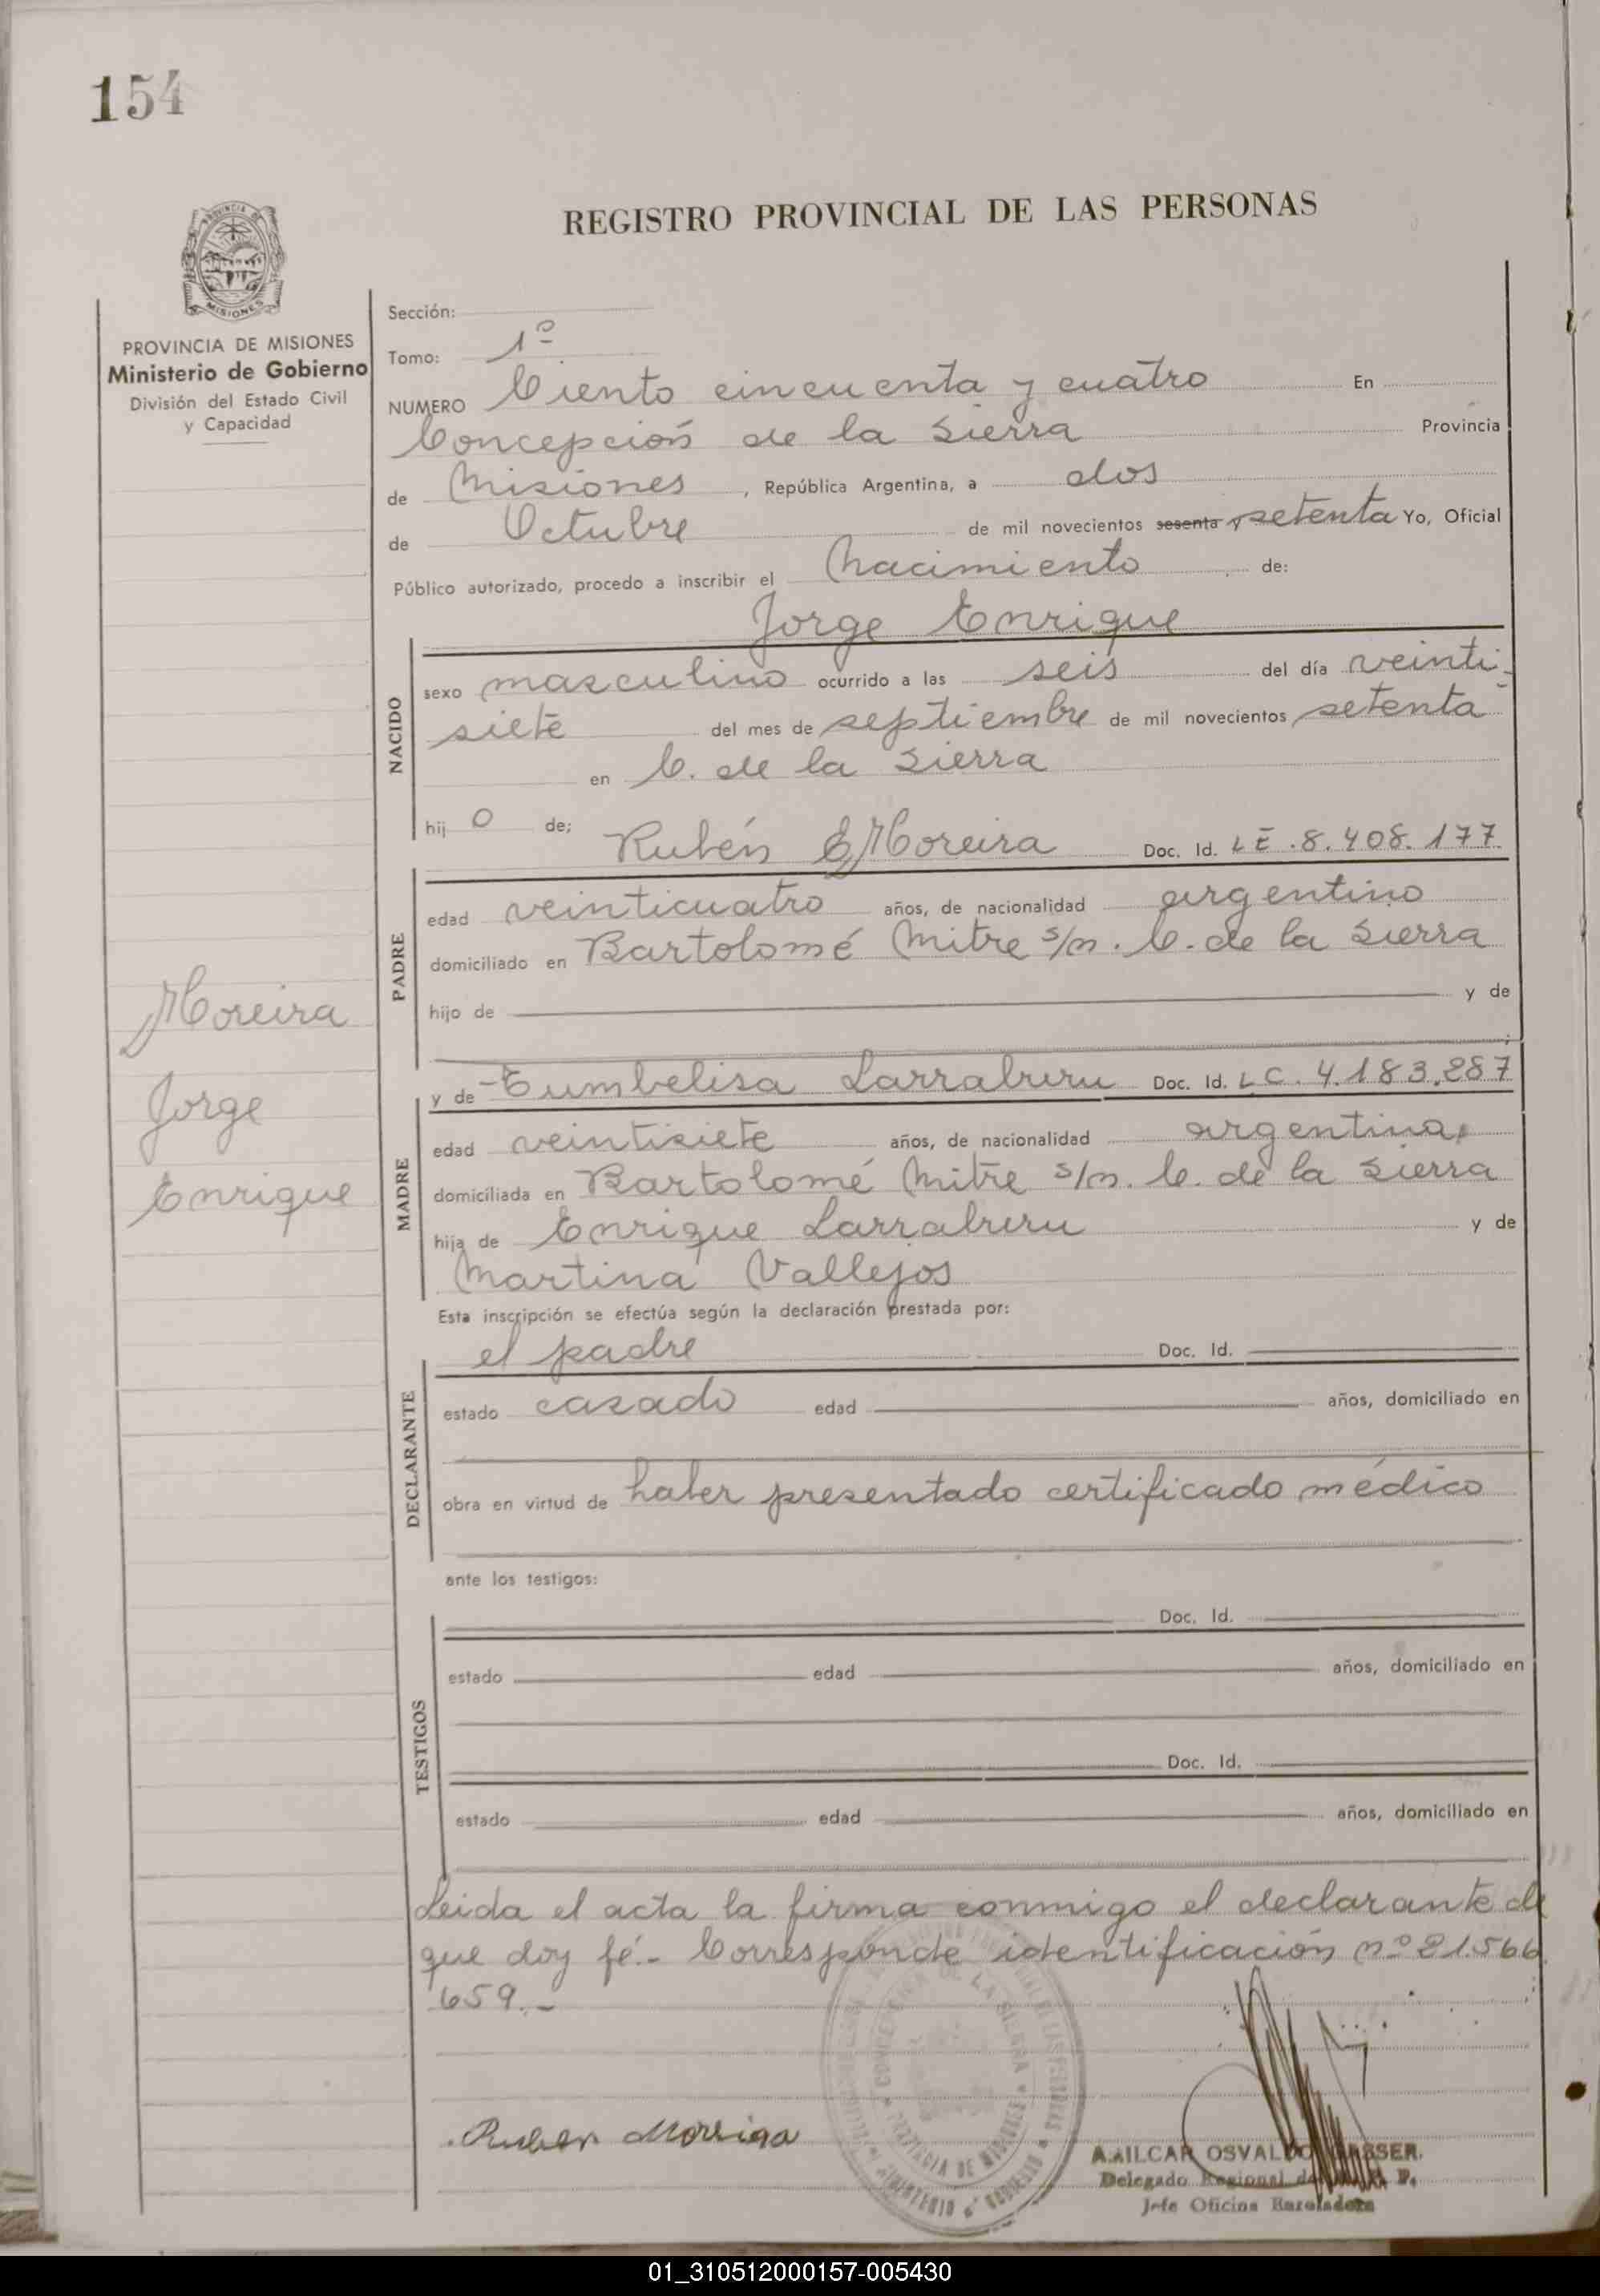 154
REGISTRO PROVINCIAL DE LAS PERSONAS
MISIONES
PROVINCIA DE MISIONES
Ministerio de Gobierno
División del Estado Civil
y Capacidad
Sección:
Tomo: 1º
NUMERO Ciento cincuenta y cuatro En
Concepción de la Sierra Provincia
de Misiones, República Argentina, a dos
de Octubre de mil novecientos sesenta y setenta Yo, Oficial
Público autorizado, procedo a inscribir el Nacimiento de:
Jorge Enrique
NACIDO
sexo masculino ocurrido a las seis del día veinti-
siete del mes de septiembre de mil novecientos setenta
en C. de la Sierra
hij o de; Rubén E Moreira Doc. Id. LE.8.408.177
PADRE
edad veinticuatro años, de nacionalidad argentino
domiciliado en Bartolomé Mitre s/n. C. de la Sierra
hijo de y de
y de Eumbelisa Larrabreru Doc. Id. LC.4.183.287
MADRE
edad veintisiete años, de nacionalidad argentina
domiciliada en Bartolomé Mitre s/n. C. de la Sierra
hija de Enrique Larrabreru y de
Martina Vallejos
Moreira
Jorge
Enrique
Esta inscripción se efectúa según la declaración prestada por:
el padre Doc. Id.
DECLARANTE
estado casado edad años, domiciliado en
obra en virtud de haber presentado certificado médico
ante los testigos:
Doc. Id.
TESTIGOS
estado edad años, domiciliado en
Doc. Id.
estado edad años, domiciliado en
Leida el acta la firma conmigo el declarante de
que doy fé.- Corresponde identificación nº 21.566
659.-
CONCEPCION DE LA SIERRA
PROVINCIA DE MISIONES
Ruben Morriga
AMILCAR OSVALDO GASSER
Delegado Regional de P.
Jefe Oficina
01_310512000157-005430